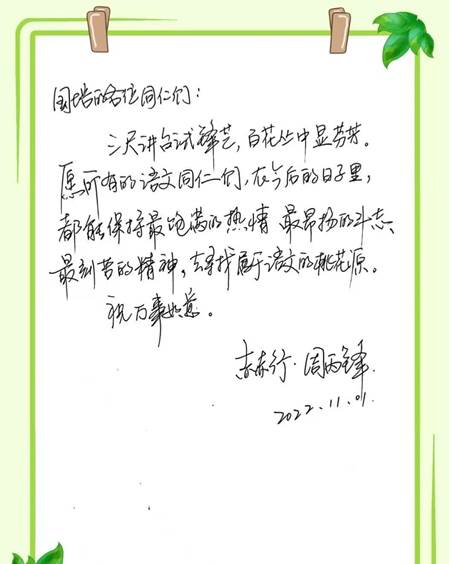 国培的各位同仁们：
三尺讲台试锋艺，百花丛中显芬芳。
愿所有的语文同仁们，在今后的日子里，
都能保持最饱满的热情、最昂扬的斗志、
最刻苦的精神，去寻找属于语文的桃花源。
祝万事如意。
周丙锋
2022.11.01.